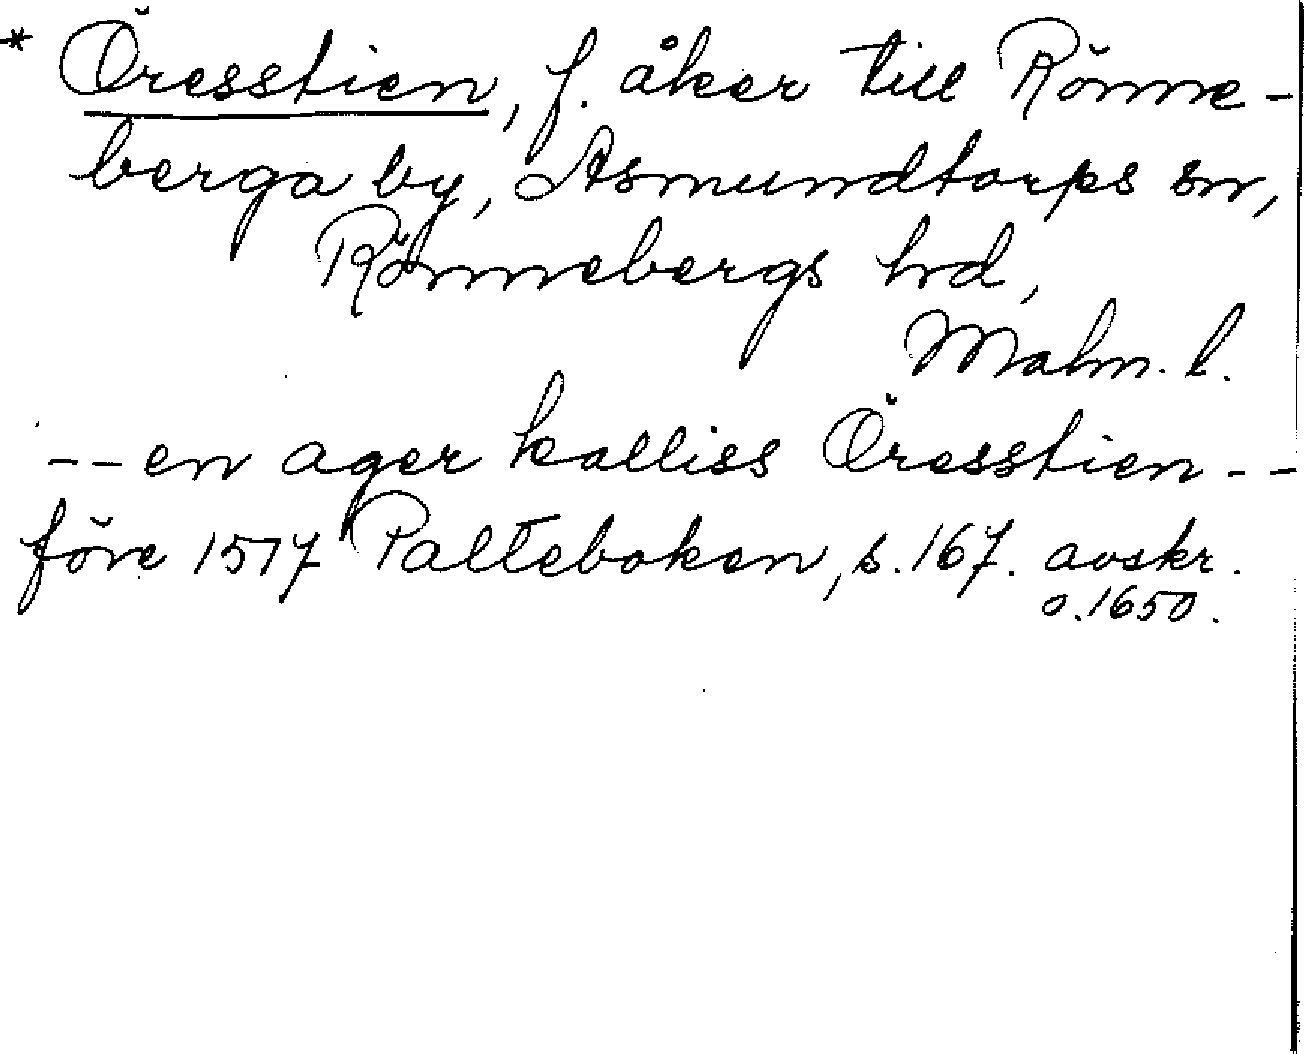 * Öresstien, f. åker till Rönne-
berga by, Asmundtorps sn,
Rönnebergs hd,
Malm. l.
-- en ager kalliss Öresstien --
före 1517 Palteboken, s. 167. avskr.
o. 1650.